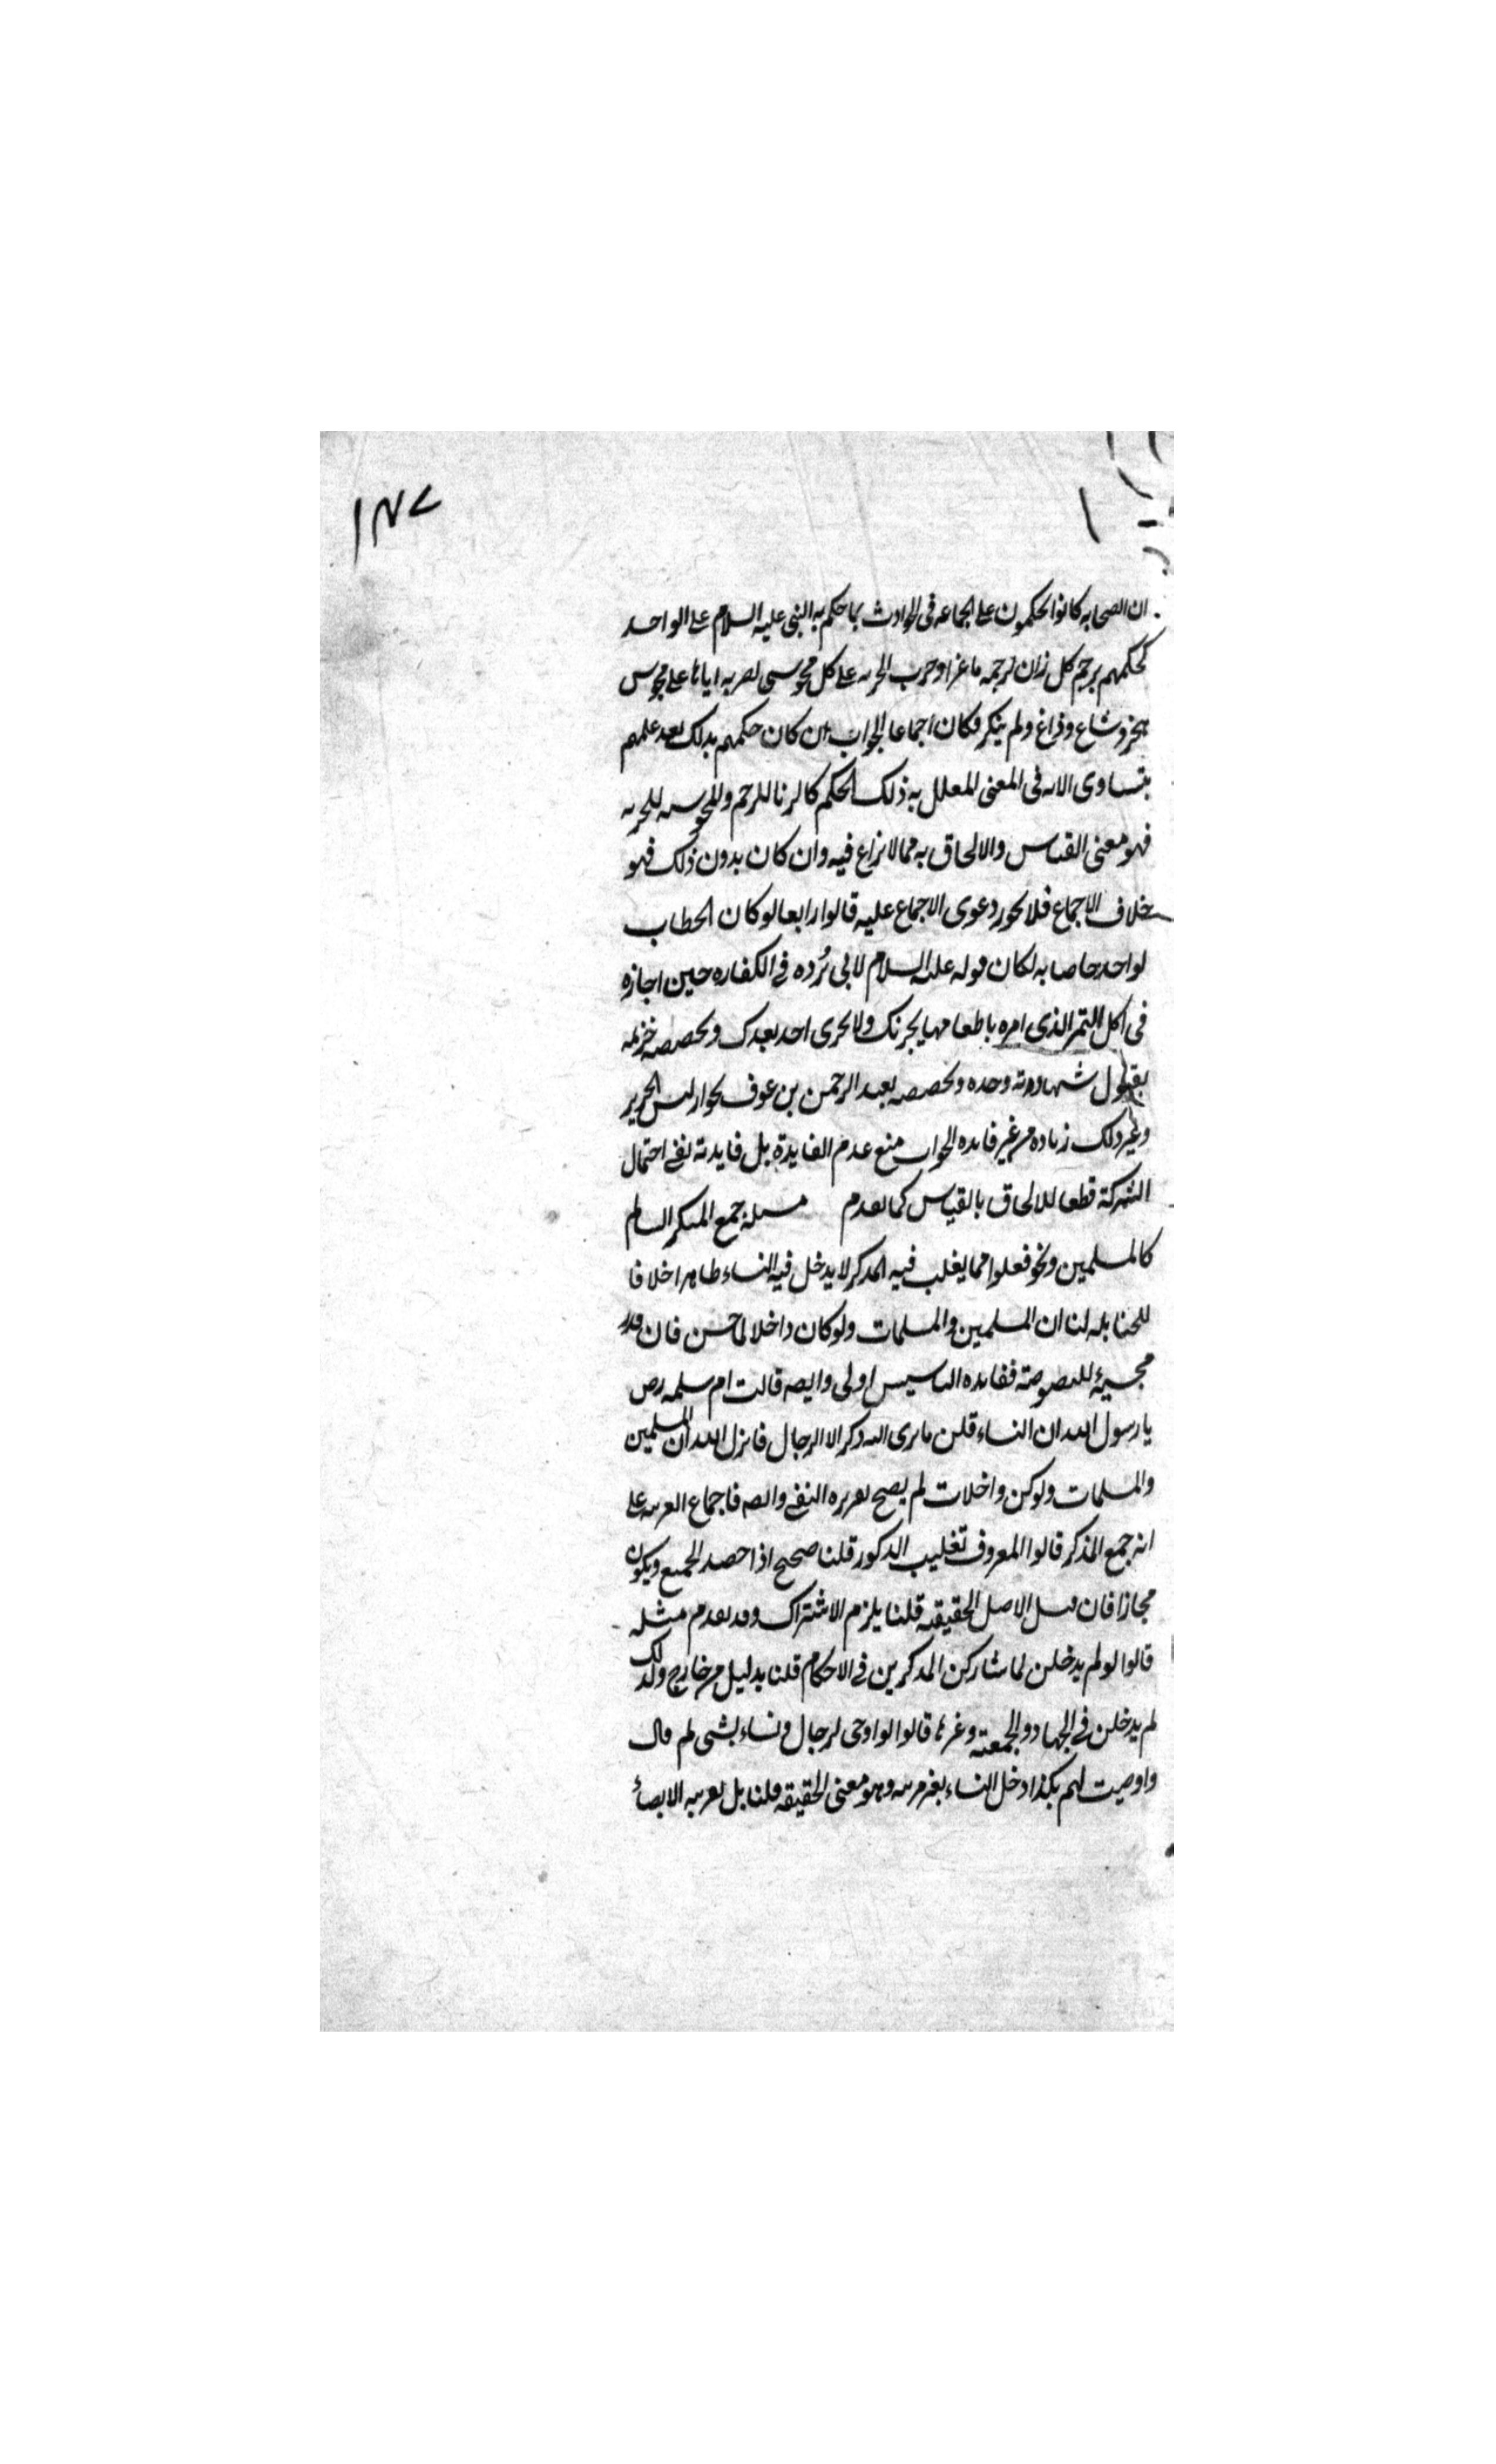 ١٤٧
ان الصحابه كانوا يحكمون على الجماعه فى الحوادث بما حكم به النبى عليه السلام على الواحد
كحكمهم برجم كل زان لرجمه ماعزا وضرب الجزيه على كل مجوسى لضربه اياها على مجوس
هجر وشاع وذاع ولم ينكر فكان اجماعا الجواب ان كان حكمهم بذلك بعد علمهم
بتساوى الامه فى المعنى المعلل به ذلك الحكم كالزنا للرجم والمجوسيه للجزيه
فهو معنى القياس والالحاق به مما لا نزاع فيه وان كان بدون ذلك فهو
خلاف الاجماع فلا يجوز دعوى الاجماع عليه قالوا رابعا لو كان الخطاب
لواحد خاصا به لكان قوله عليه السلام لابى بُرده فى الكفاره حين اجازه
فى اكل التمر الذى امره باطعامها يجزئك ولا يجزى احد بعدك وتخصيصه خزيمه
بقبول شهادته وحده وتخصيصه لعبد الرحمن بن عوف بجواز لبس الحرير
وغير ذلك زياده من غير فايده الجواب منع عدم الفايدة بل فايدته نفى احتمال
الشركة قطعا للالحاق بالقياس كما تقدم مسئلة جمع المذكر السالم
كالمسلمين ونحو فعلوا مما يغلب فيه المذكر لا يدخل فيه النساء ظاهرا خلافا
للحنابله لنا ان المسلمين والمسلمات ولو كان داخلا لما حسن فان قدر
مجيئه للنصوصية ففايده التاسيس اولى وايضه قالت ام سلمه رض
يا رسول الله ان النساء قلن ما نرى الله ذكر الا الرجال فانزل الله ان المسلمين
والمسلمات ولو كن داخلات لم يصح تقريره النفى وايضه فاجماع العربيه على
انه جمع المذكر قالوا المعروف تغليب الذكور قلنا صحيح اذا قصد الجميع ويكون
مجازا فان قيل الاصل الحقيقه قلنا يلزم الاشتراك وقد تقدم مثله
قالوا لو لم يدخلن لما شاركن المذكرين فى الاحكام قلنا بدليل من خارج ولذلك
لم يدخلن فى الجهاد والجمعة وغيرها قالوا لو اوصى لرجال ونساء بشى ثم قال
واوصيت لهم بكذا دخل النساء بغير قرينه وهو معنى الحقيقه قلنا بل بقرينه الايصاء